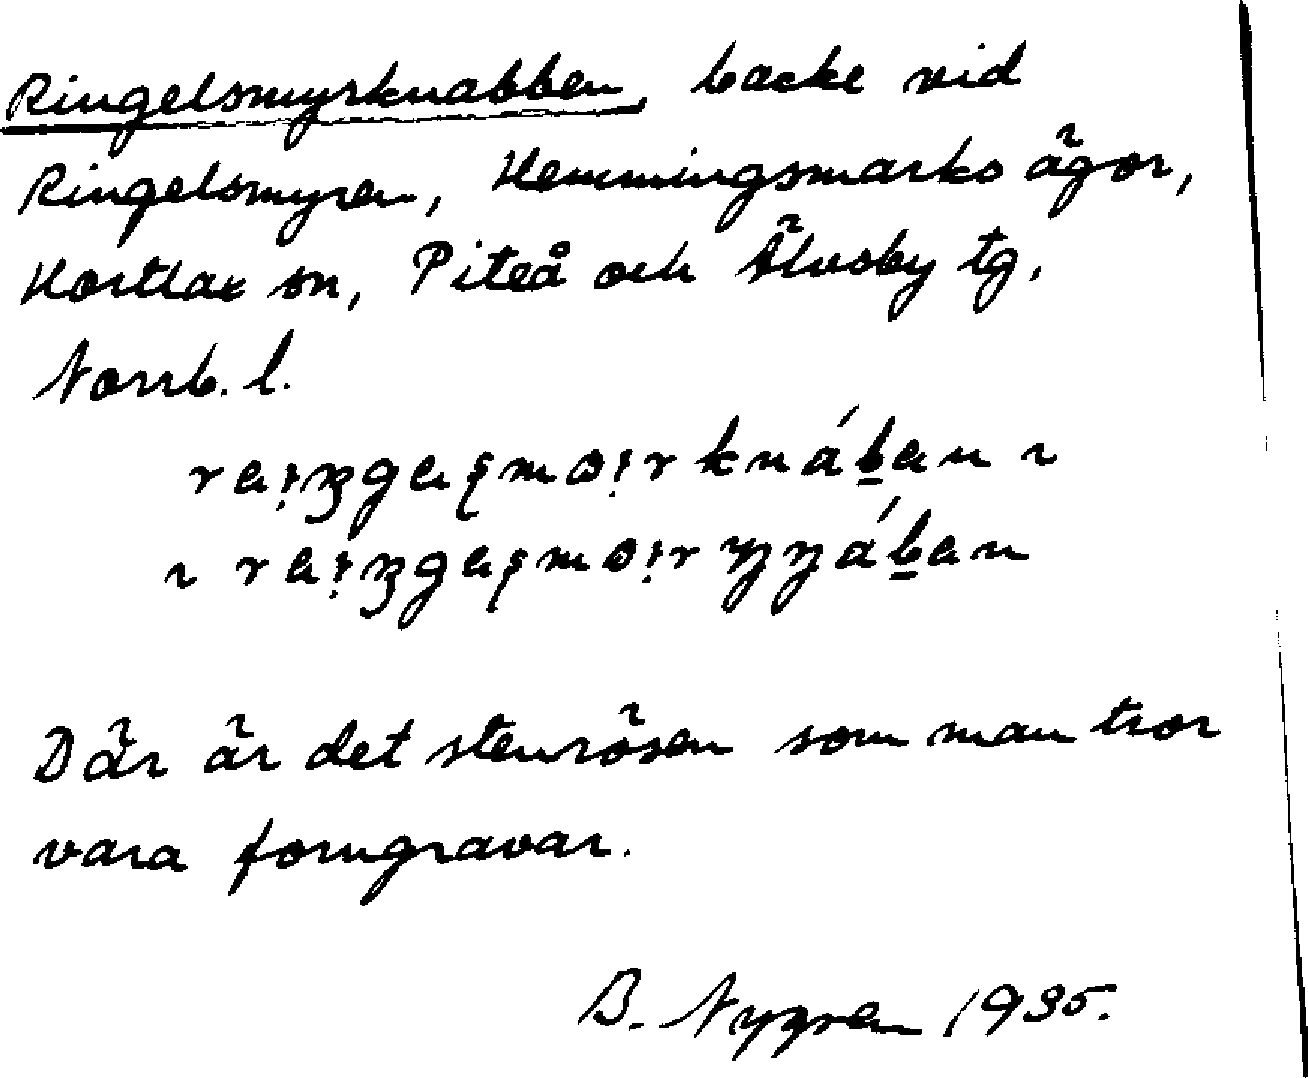 Ringelsmyrknabben, backe vid
Ringelsmyren, Hemmingsmarks ägor,
Hortlax sn, Piteå och Älvsby tg,
Norrb. l.
Där är det stenrösen som man tror
vara forngravar.
B. Nygren 1935.